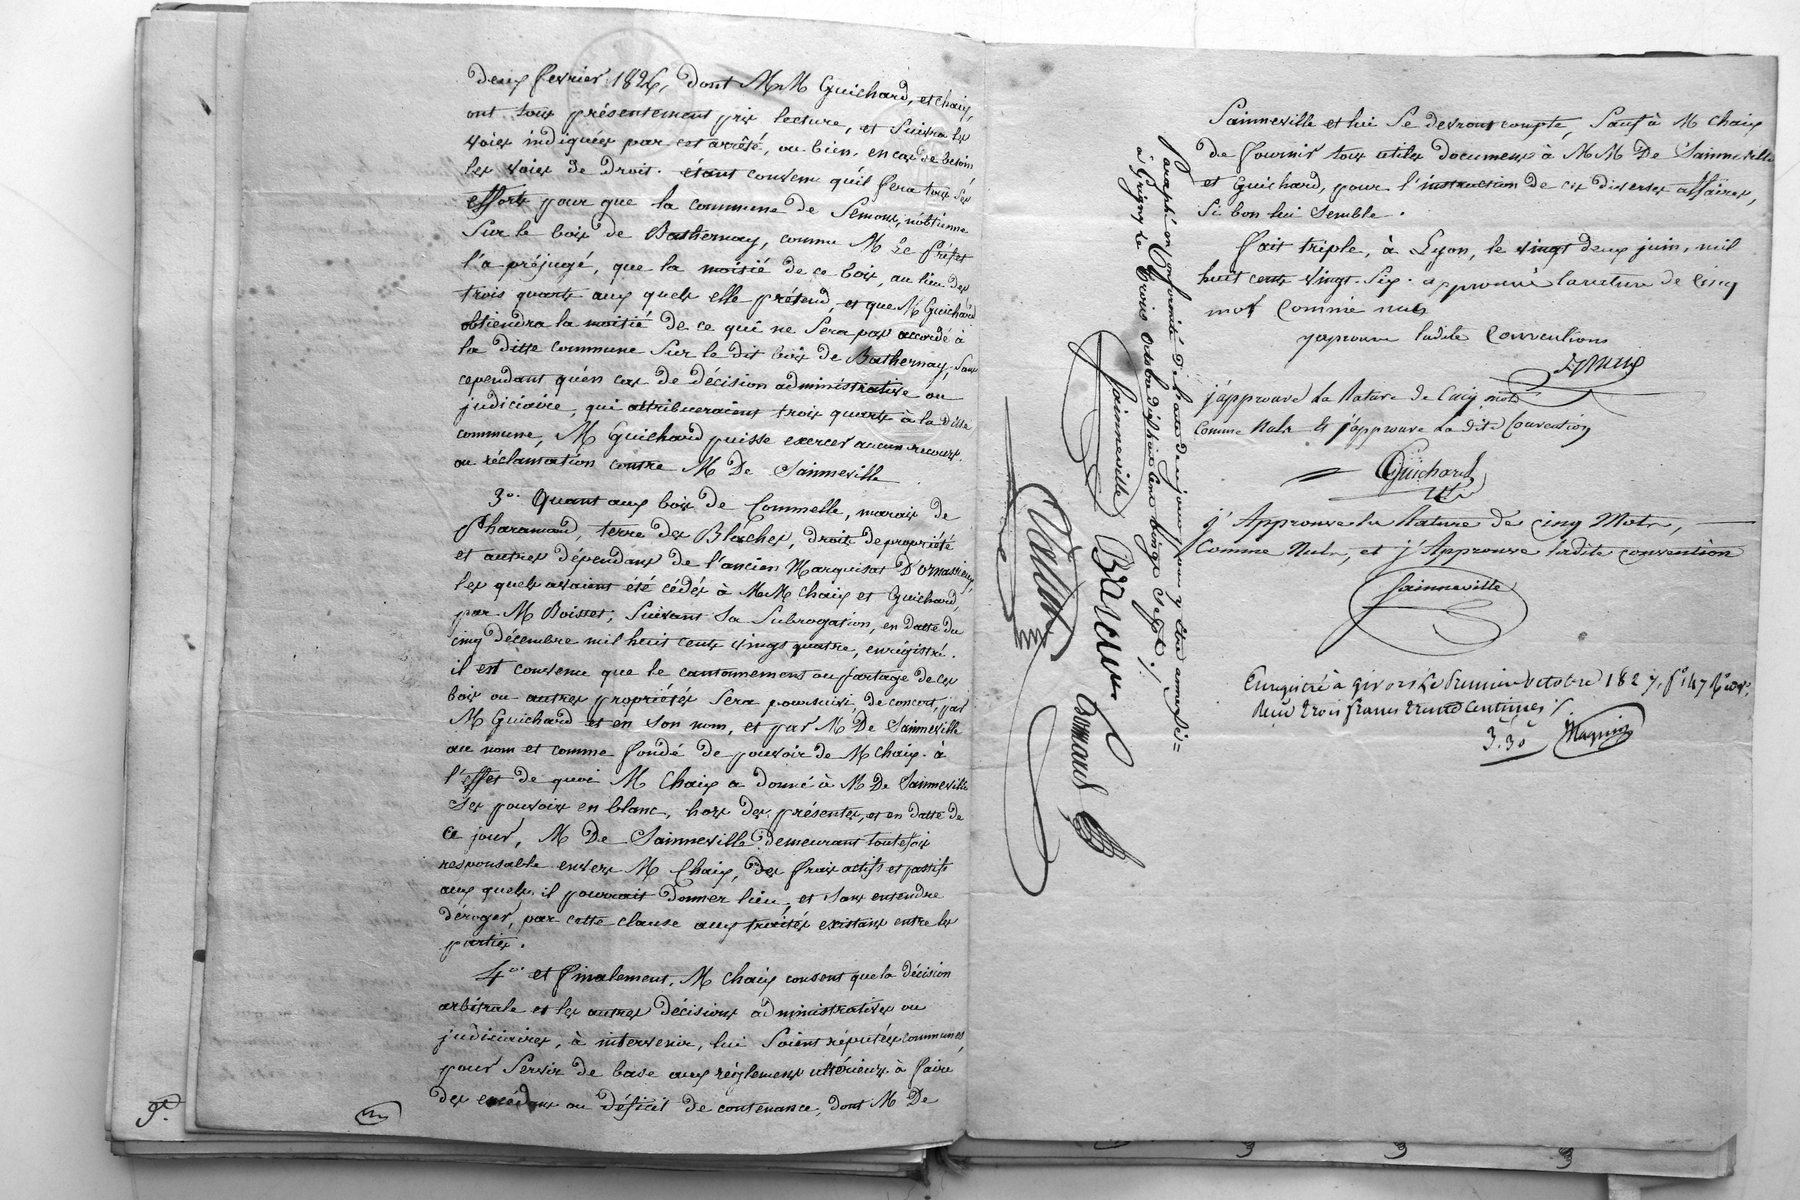 deux février 1826, dont MM Guichard, et chaix,
ont tous présentement pris lecture, et suivra les
voies indiquées par cet arrêté, ou bien, en cas de besoin
les voies de droit. étant convenu qu'il fera tous ses
efforts pour que la commune de Semons, n'obtienne
sur le bois de Bathernay, comme M Le Préfet
l'a préjugé, que la moitié de ce bois, au lieu des
trois quarts aux quels elle prétend, et que M Guichard
obtiendra la moitié de ce qui ne sera pas accordé à
la ditte commune sur le dit bois de Bathernay, sans
cependant qu'en cas de décision administrative ou
judiciaire, qui attribueraient trois quarts à la ditte
commune, M Guichard puisse exercer aucun recours
ou réclamation contre M De Sainneville
3° Quant aux bois de Commelle, marais de
Pharamand, terre des Blaches, droits de propriété
et autres dépendans de l'ancien Marquisat D'ornassieux,
les quels avaient été cédés à MM Chaix et Guichard,
par M Boisset, suivant sa subrogation, en datte du
cinq décembre mil huit cents vingt quatre, enregistré.
il est convenu que le cantonnement ou partage de ces
bois ou autres propriétés sera poursuivi de concert, par
M Guichard et en son nom, et par M De Sainneville
au nom et comme fondé de pouvoir de M chaix. à
l'effet de quoi M Chaix a donné à M De Sainneville
ses pouvoirs en blanc, hors des présentes, et en datte de
ce jour, M De Sainneville demeurant toutefois
responsable envers M Chaix, des frais actifs et passifs
aux quels il pourrait donner lieu, et sans entendre
déroger, par cette clause aux traités existans entre les
parties.
4° et finalement, M chaix consent que la décision
arbitrale et les autres décisions administratives ou
judiciaires, à intervenir, lui soient réputées communes,
pour servir de base aux règlemens ultérieurs à faire
des excédans ou déficit de contenance, dont M De
Sainneville et lui se devront compte, sauf à M Chaix
de fournir tous utiles documens à MM De Sainneville
et Guichard, pour l'instruction de ces diverses affaires,
si bon lui semble.
fait triple, à Lyon, le vingt deux juin, mil
huit cents vingt-six. approuvé la rature de cinq
mots comme nuls
j'approuve ladite convention
j'approuve La Rature de Cinq mots
comme Nuls & j'approuve La dite Convention
Guichard
j'Approuve la Rature de cinq Mots,
Comme Nuls, et j'Approuve ladite convention
Sainneville
Enregistré à Givors Le premier octobre 1827, f° 147
Reçu trois francs trente Centimes
3.30
Paraphé en Conformité de l'acte de ce jour pour y être annexé
à Grigny Le trois octobre dix huit cent vingt sept
Sainneville